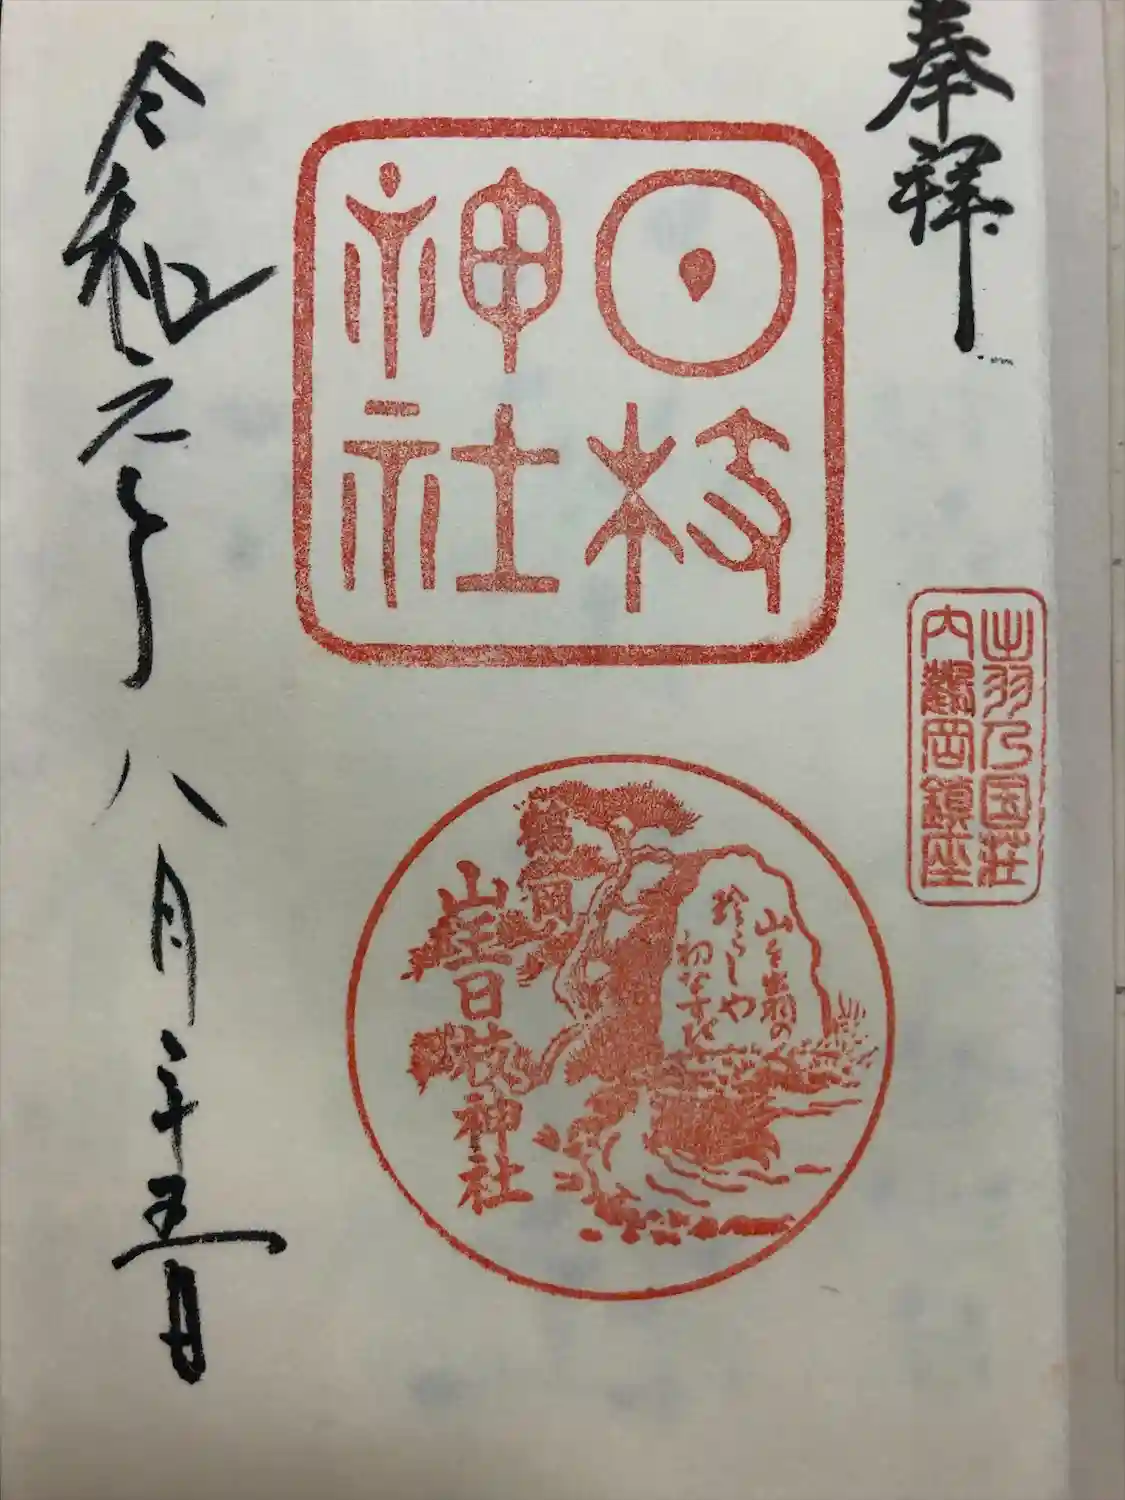 奉拝
出羽乃国荘
内鶴岡鎮座
日枝
神社
珍らしや
山を出羽の
初なすび
鶴岡
山王日枝神社
令和六年八月二十五日